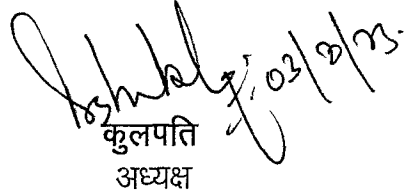 03/8/23.
कुलपति
अध्यक्ष